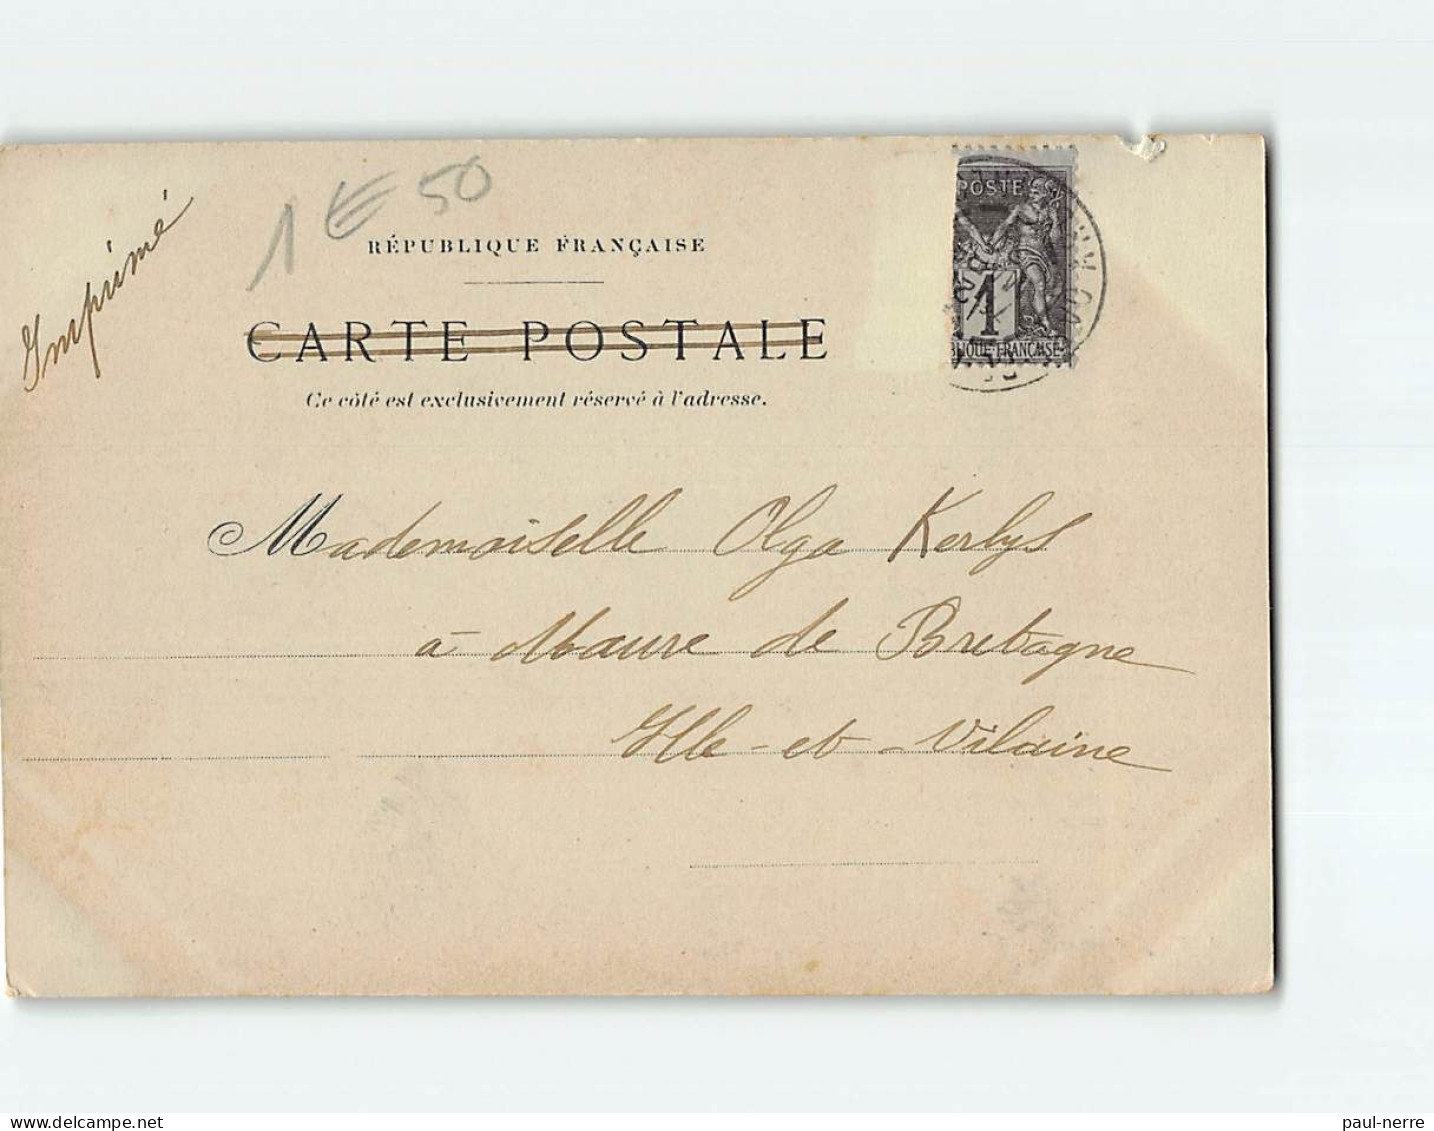 Imprimé
1 € 50
RÉPUBLIQUE FRANÇAISE
CARTE POSTALE
Ce côté est exclusivement réservé à l'adresse.
POSTE
1
BLIQUE FRANÇAISE
Mademoiselle Olga Kerlys
à Maure de Bretagne
Ille-et-Vilaine
delcampe.net
paul-nerre